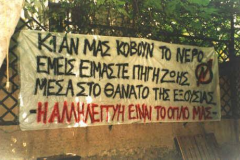 ΚΙ ΑΝ ΜΑΣ ΚΟΒΟΥΝ ΤΟ ΝΕΡΟ
ΕΜΕΙΣ ΕΙΜΑΣΤΕ ΠΗΓΗ ΖΩΗΣ
ΜΕΣΑ ΣΤΟ ΘΑΝΑΤΟ ΤΗΣ ΕΞΟΥΣΙΑΣ
-Η ΑΛΛΗΛΕΓΓΥΗ ΕΙΝΑΙ ΤΟ ΟΠΛΟ ΜΑΣ-